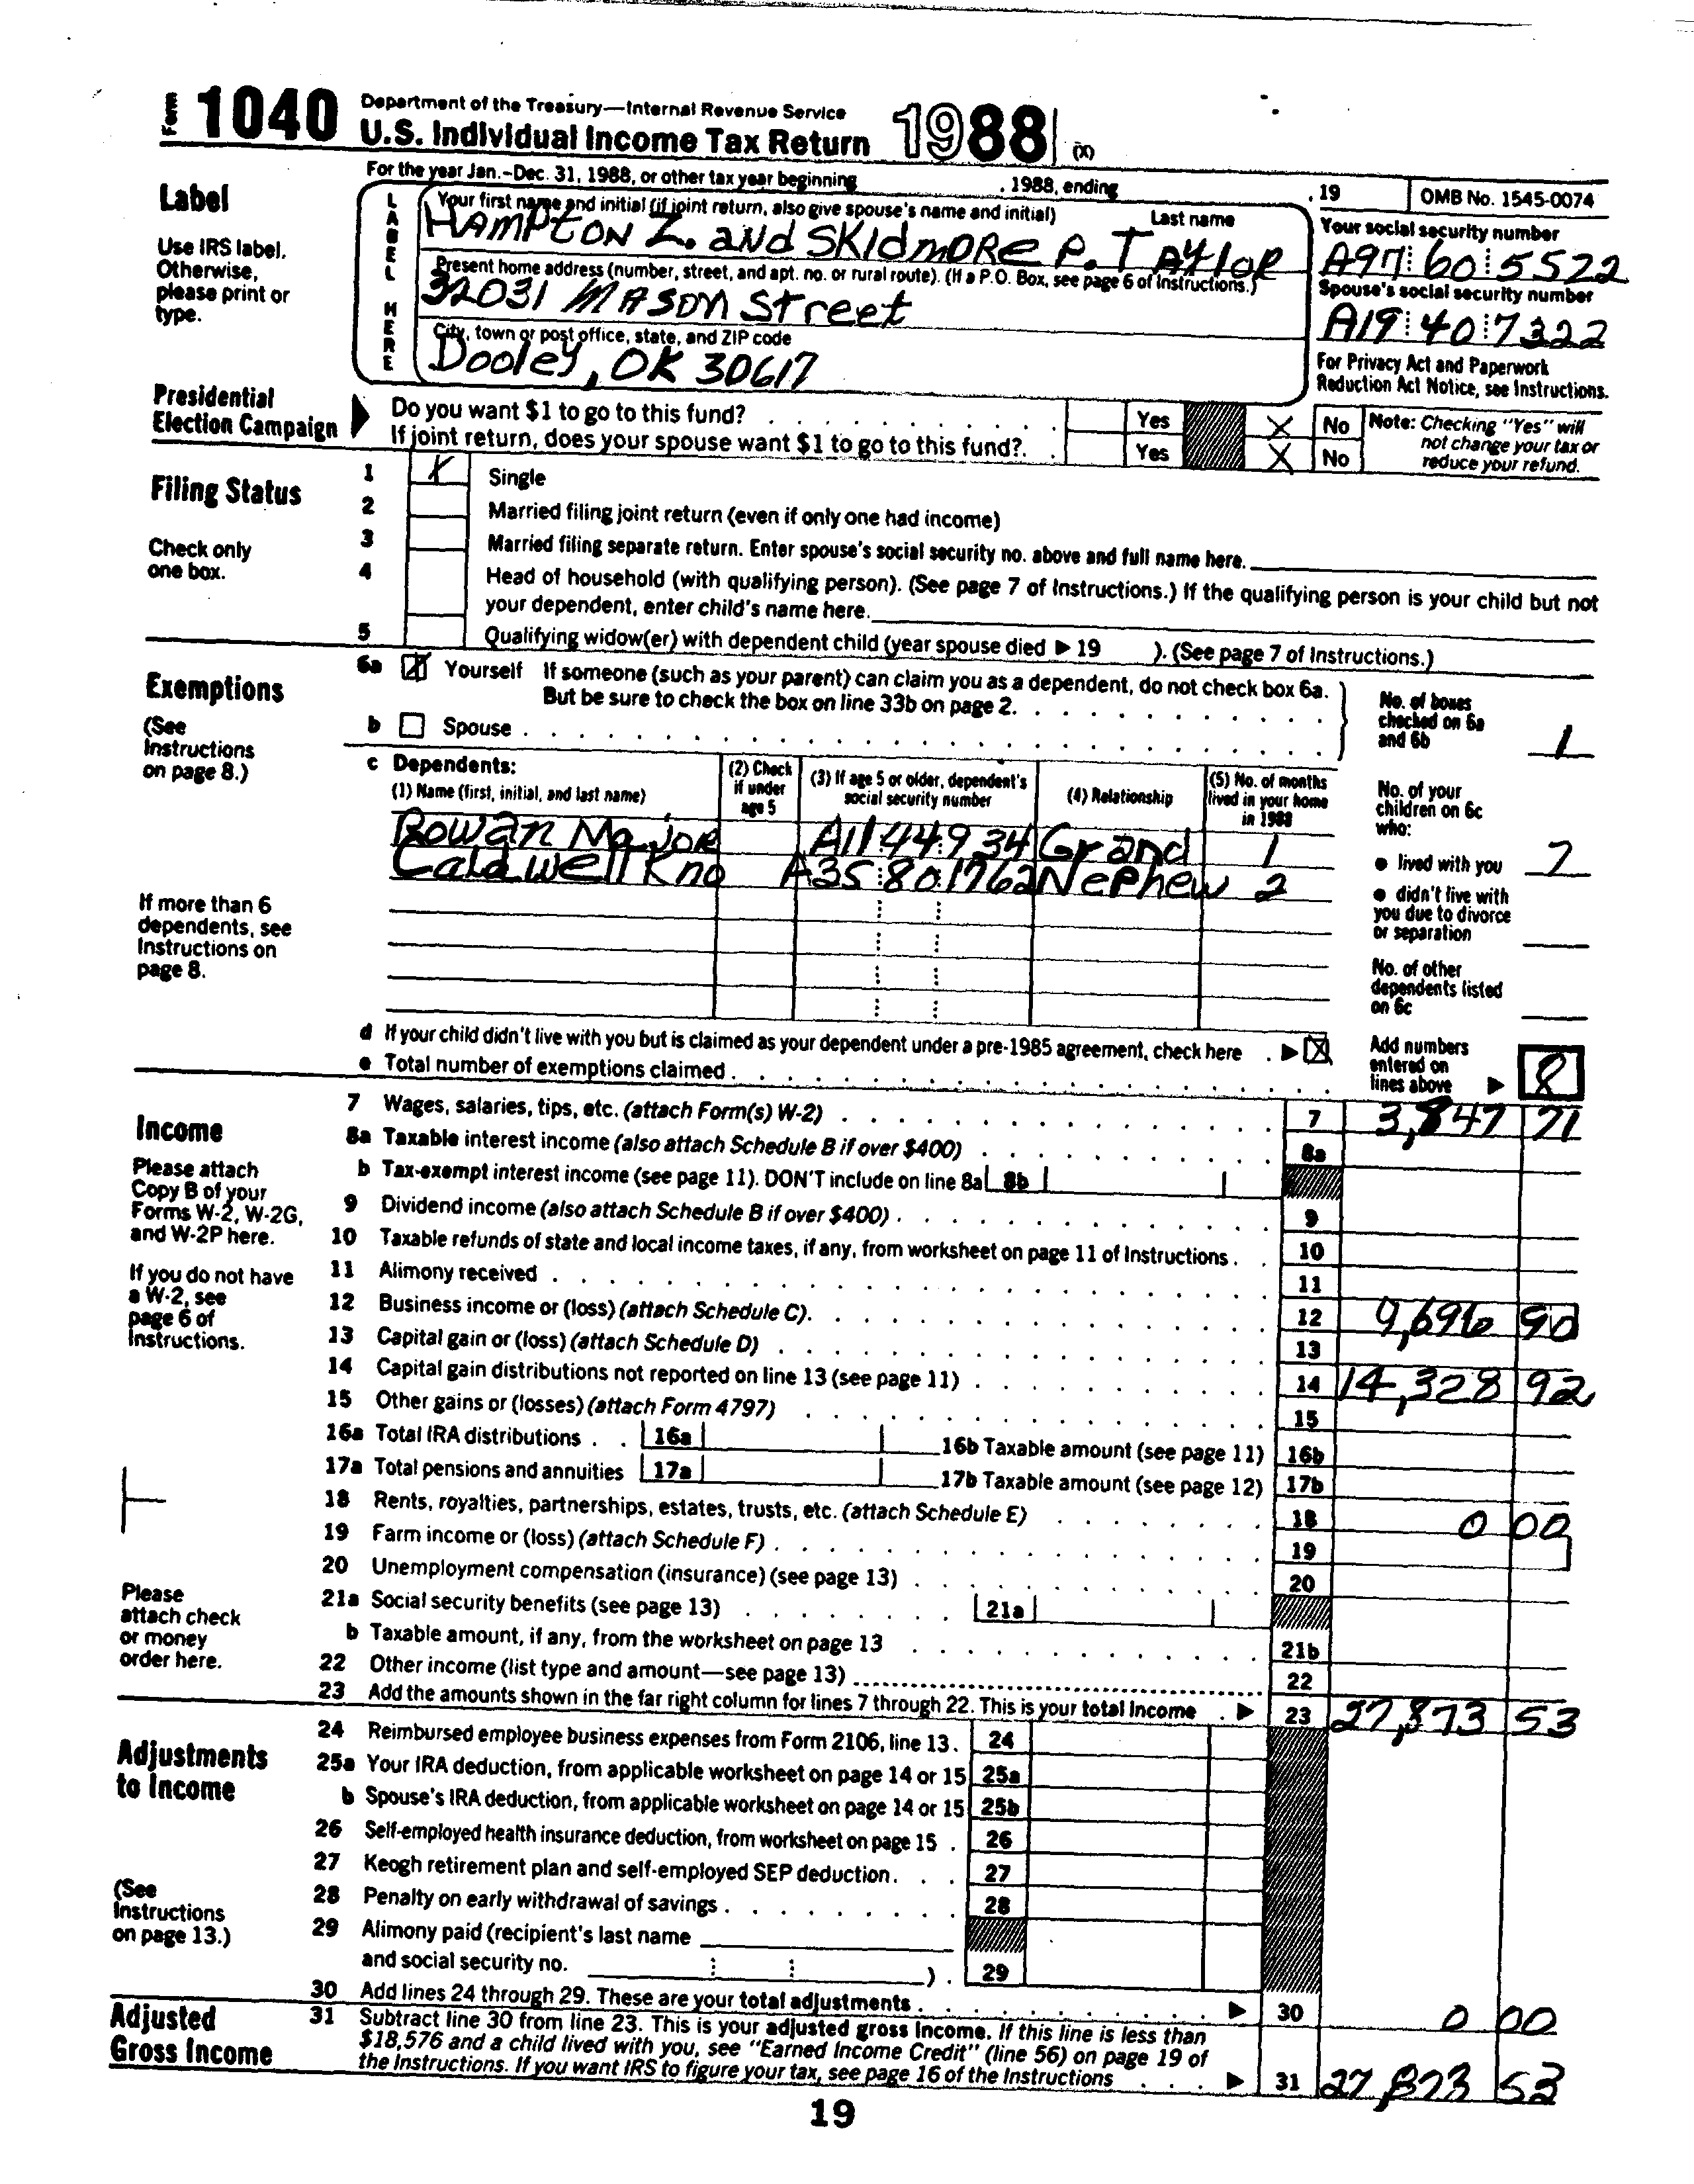 Form 1040 Department of the Treasury—Internal Revenue Service
U.S. Individual Income Tax Return 1988 (X)
For the year Jan.-Dec. 31, 1988, or other tax year beginning , 1988, ending , 19 OMB No. 1545-0074
Label
Use IRS label.
Otherwise,
please print or
type.
LABEL HERE
Your first name and initial (if joint return, also give spouse's name and initial) Last name
HAMPTON Z. and SKIdmORe P. TAYlOR
Your social security number
A97 60 5522
Present home address (number, street, and apt. no. or rural route). (If a P.O. Box, see page 6 of Instructions.)
32031 MASON Street
Spouse's social security number
A19 40 7322
City, town or post office, state, and ZIP code
Dooley, OK 30617
For Privacy Act and Paperwork
Reduction Act Notice, see Instructions.
Presidential
Election Campaign
Do you want $1 to go to this fund? Yes X No
If joint return, does your spouse want $1 to go to this fund? Yes X No
Note: Checking "Yes" will
not change your tax or
reduce your refund.
Filing Status
Check only
one box.
1 X Single
2 Married filing joint return (even if only one had income)
3 Married filing separate return. Enter spouse's social security no. above and full name here.
4 Head of household (with qualifying person). (See page 7 of Instructions.) If the qualifying person is your child but not
your dependent, enter child's name here.
5 Qualifying widow(er) with dependent child (year spouse died ▶ 19 ). (See page 7 of Instructions.)
Exemptions
(See
Instructions
on page 8.)
6a X Yourself If someone (such as your parent) can claim you as a dependent, do not check box 6a.
But be sure to check the box on line 33b on page 2.
b Spouse
No. of boxes
checked on 6a
and 6b 1
c Dependents:
(1) Name (first, initial, and last name)
(2) Check
if under
age 5
(3) If age 5 or older, dependent's
social security number
(4) Relationship
(5) No. of months
lived in your home
in 1988
Rowan Major A11 44 934 Grand 1
Caldwell Kno A35 80 1762 Nephew 2
No. of your
children on 6c
who:
● lived with you 7
● didn't live with
you due to divorce
or separation
No. of other
dependents listed
on 6c
If more than 6
dependents, see
Instructions on
page 8.
d If your child didn't live with you but is claimed as your dependent under a pre-1985 agreement, check here ▶ X
e Total number of exemptions claimed
Add numbers
entered on
lines above ▶ 8
Income
Please attach
Copy B of your
Forms W-2, W-2G,
and W-2P here.
If you do not have
a W-2, see
page 6 of
Instructions.
7 Wages, salaries, tips, etc. (attach Form(s) W-2) 7 3,847 71
8a Taxable interest income (also attach Schedule B if over $400) 8a
b Tax-exempt interest income (see page 11). DON'T include on line 8a 8b
9 Dividend income (also attach Schedule B if over $400) 9
10 Taxable refunds of state and local income taxes, if any, from worksheet on page 11 of Instructions 10
11 Alimony received 11
12 Business income or (loss) (attach Schedule C) 12 9,696 90
13 Capital gain or (loss) (attach Schedule D) 13
14 Capital gain distributions not reported on line 13 (see page 11) 14 14,328 92
15 Other gains or (losses) (attach Form 4797) 15
16a Total IRA distributions 16a 16b Taxable amount (see page 11) 16b
17a Total pensions and annuities 17a 17b Taxable amount (see page 12) 17b
18 Rents, royalties, partnerships, estates, trusts, etc. (attach Schedule E) 18 0 00
19 Farm income or (loss) (attach Schedule F) 19
20 Unemployment compensation (insurance) (see page 13) 20
21a Social security benefits (see page 13) 21a
b Taxable amount, if any, from the worksheet on page 13 21b
22 Other income (list type and amount—see page 13) 22
23 Add the amounts shown in the far right column for lines 7 through 22. This is your total income ▶ 23 27,873 53
Please
attach check
or money
order here.
Adjustments
to Income
(See
Instructions
on page 13.)
24 Reimbursed employee business expenses from Form 2106, line 13. 24
25a Your IRA deduction, from applicable worksheet on page 14 or 15 25a
b Spouse's IRA deduction, from applicable worksheet on page 14 or 15 25b
26 Self-employed health insurance deduction, from worksheet on page 15 26
27 Keogh retirement plan and self-employed SEP deduction 27
28 Penalty on early withdrawal of savings 28
29 Alimony paid (recipient's last name
and social security no. ) 29
30 Add lines 24 through 29. These are your total adjustments ▶ 30 0 00
Adjusted
Gross Income
31 Subtract line 30 from line 23. This is your adjusted gross income. If this line is less than
$18,576 and a child lived with you, see "Earned Income Credit" (line 56) on page 19 of
the Instructions. If you want IRS to figure your tax, see page 16 of the Instructions ▶ 31 27,873 53
19